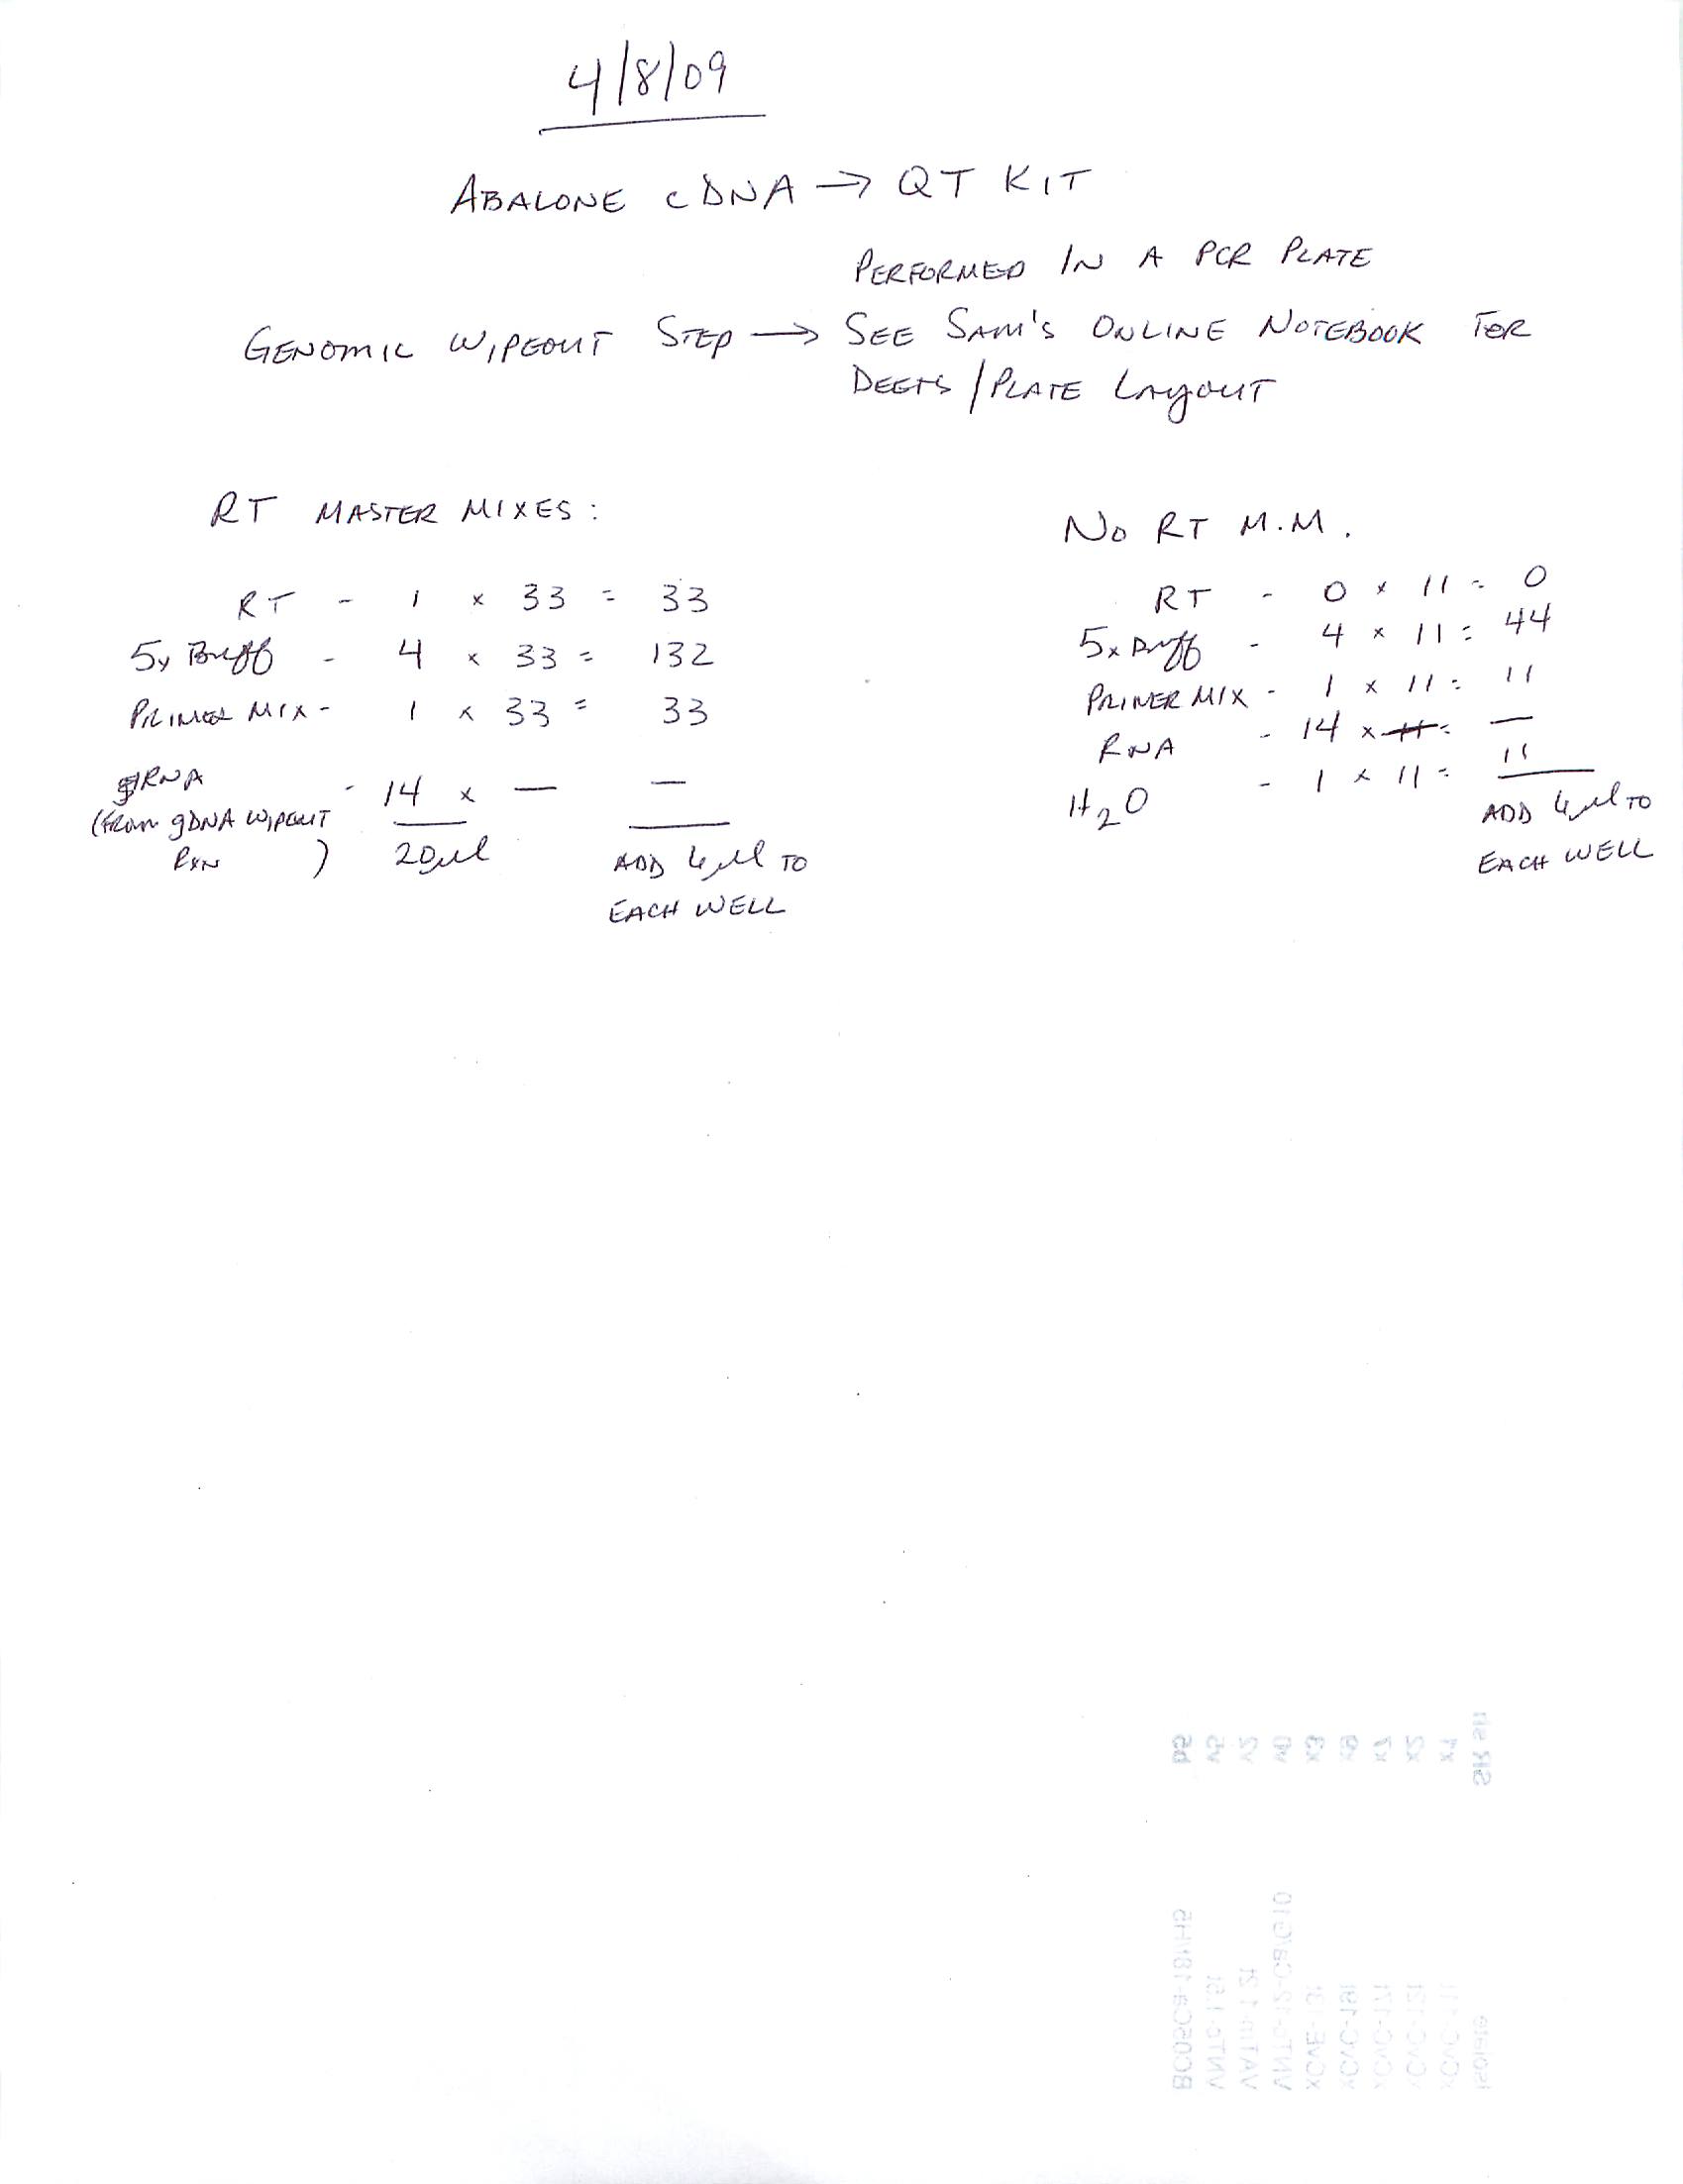 4/8/09
ABALONE cDNA → QT KIT
PERFORMED IN A PCR PLATE
GENOMIC WIPEOUT STEP → SEE SAM'S ONLINE NOTEBOOK FOR
DEETS / PLATE LAYOUT
RT MASTER MIXES:
RT - 1 x 33 = 33
5x Buff - 4 x 33 = 132
PRIMER MIX - 1 x 33 = 33
RNA - 14 x — —
(FROM gDNA WIPEOUT
RXN ) 20µl ADD 6µl TO
EACH WELL
NO RT M.M.
RT - 0 x 11 = 0
5x Buff - 4 x 11 = 44
PRIMER MIX - 1 x 11 = 11
RNA - 14 x 11 = —
H2O - 1 x 11 = 11
ADD 6µl TO
EACH WELL